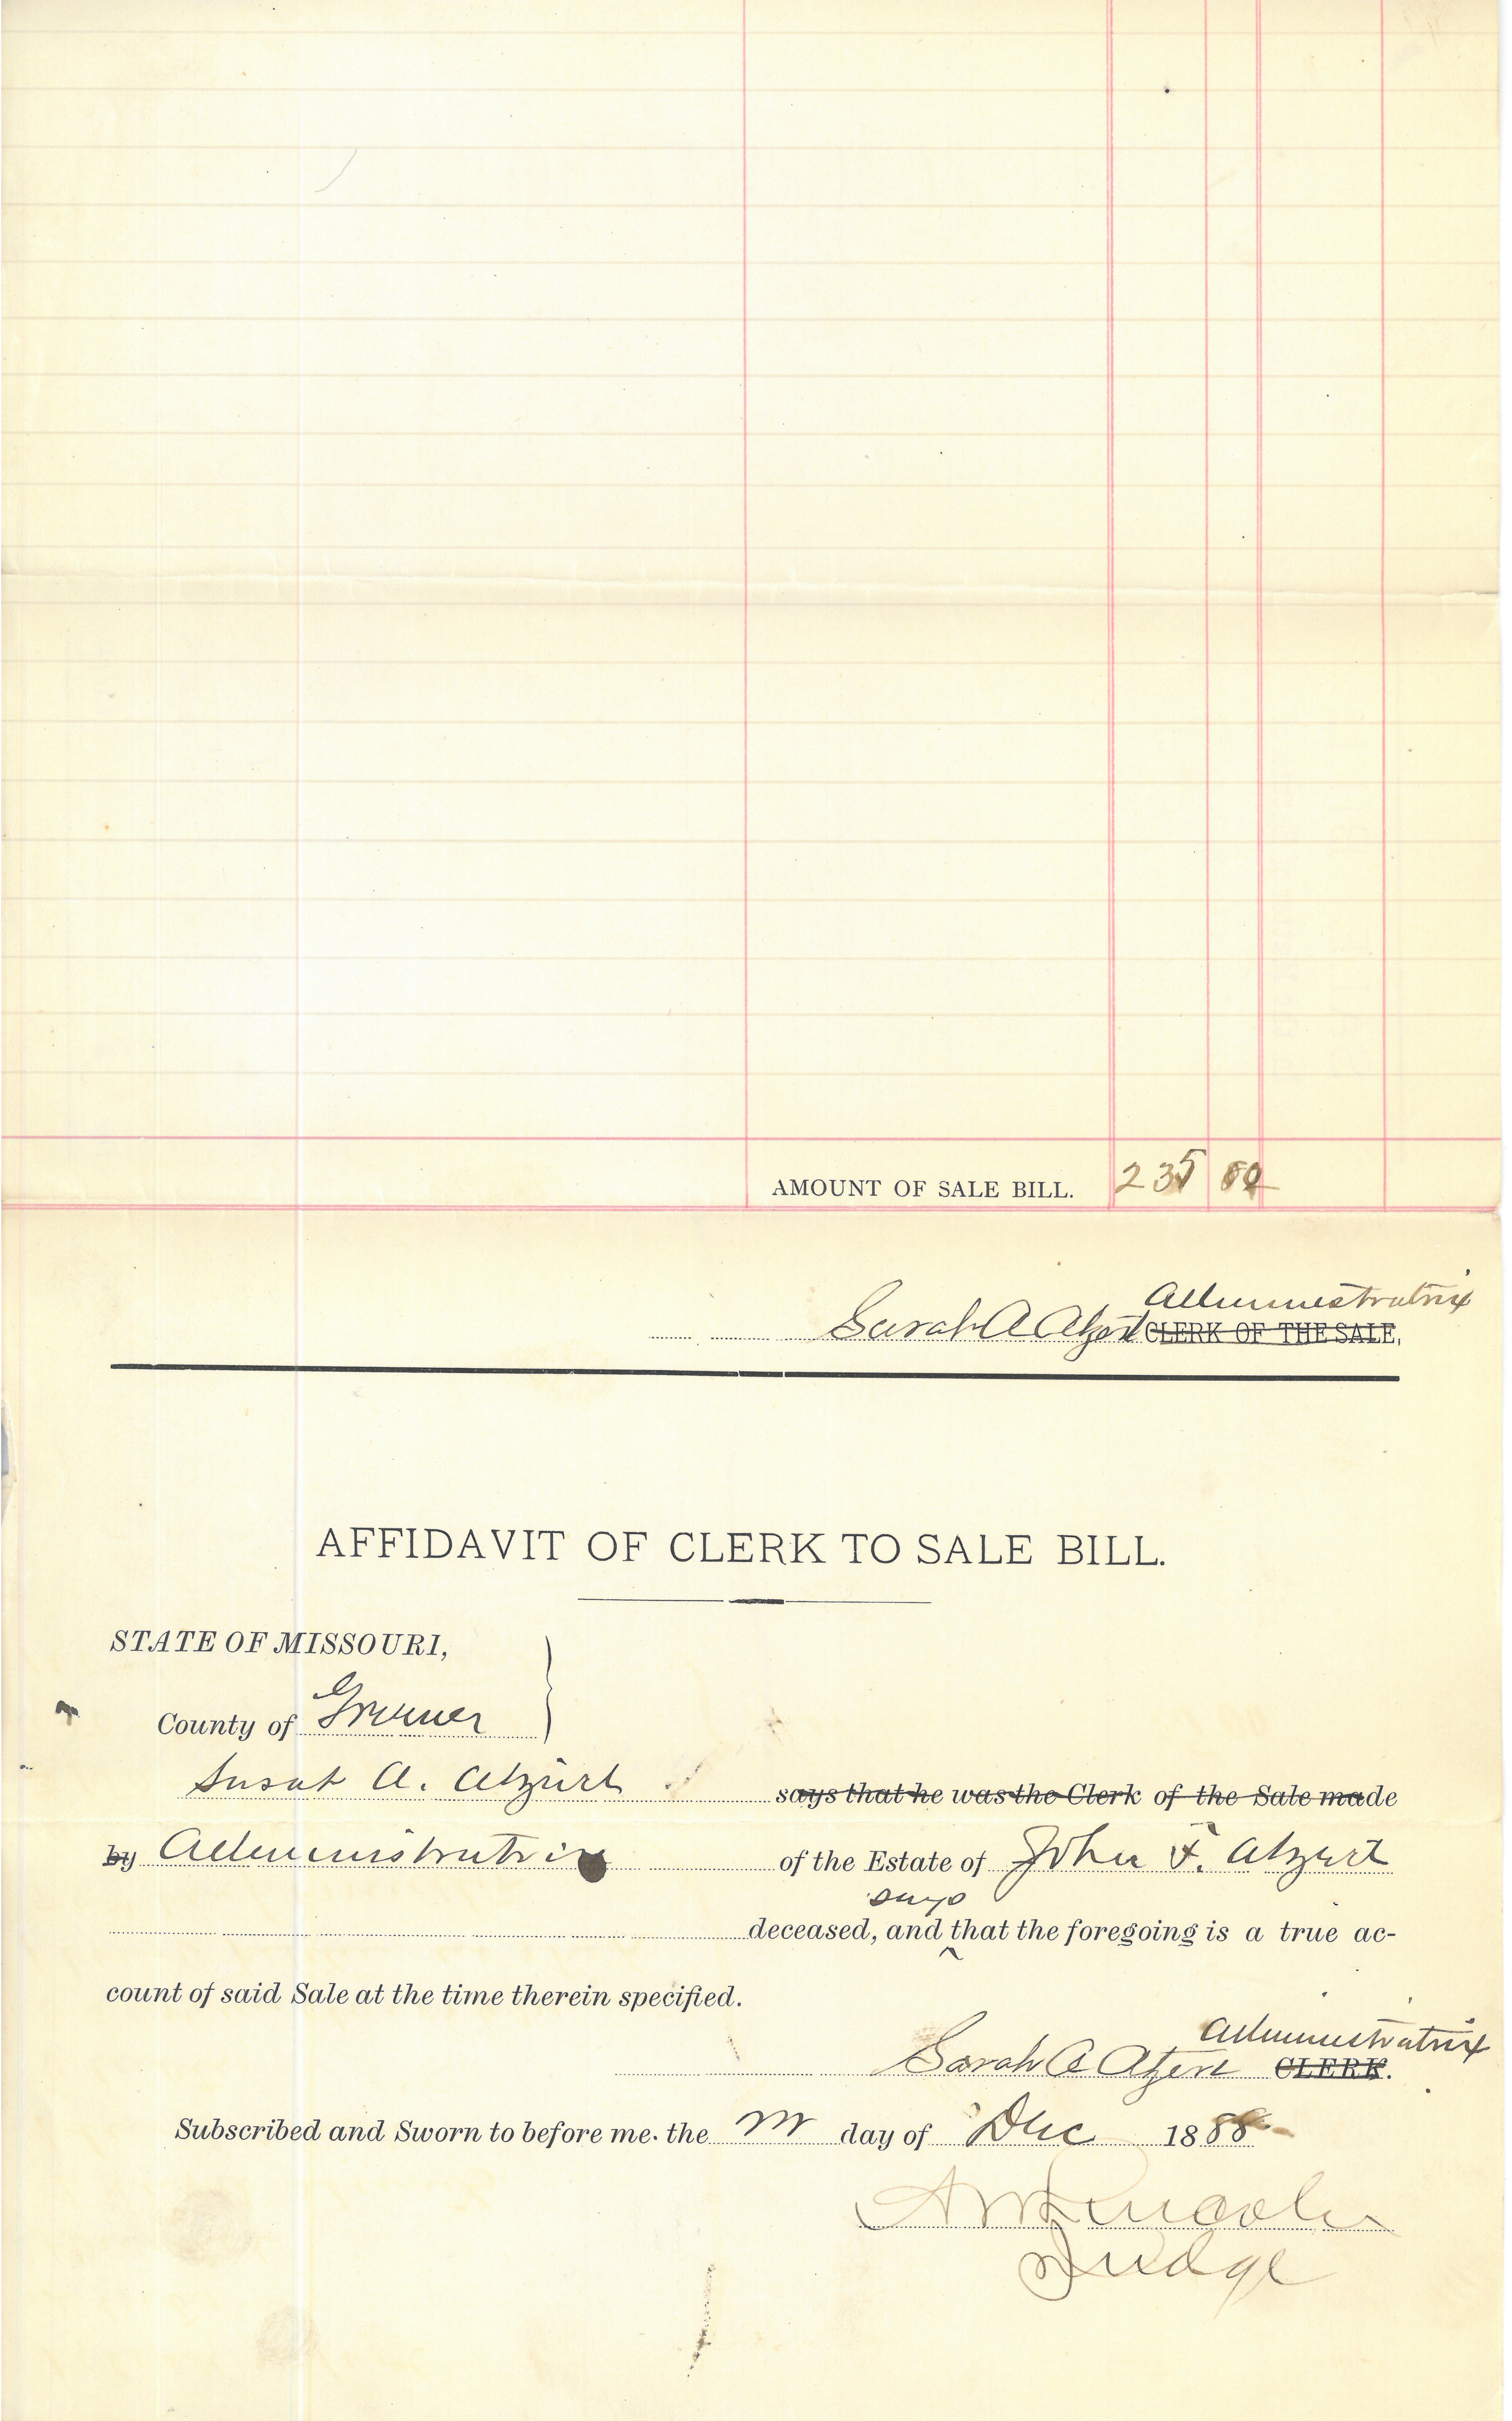 AMOUNT OF SALE BILL. 235
Administratrix
Sarah A Atzert CLERK OF THE SALE,
AFFIDAVIT OF CLERK TO SALE BILL.
STATE OF MISSOURI,
County of Greene
A. Atzert says that he was the Clerk of the Sale made
by Administratrix of the Estate of John F. Atzert
says
deceased, and ‸ that the foregoing is a true ac-
count of said Sale at the time therein specified.
Administratrix
Sarah A Atzert CLERK.
Subscribed and Sworn to before me. the day of Dec 1888
Lincoln
Judge